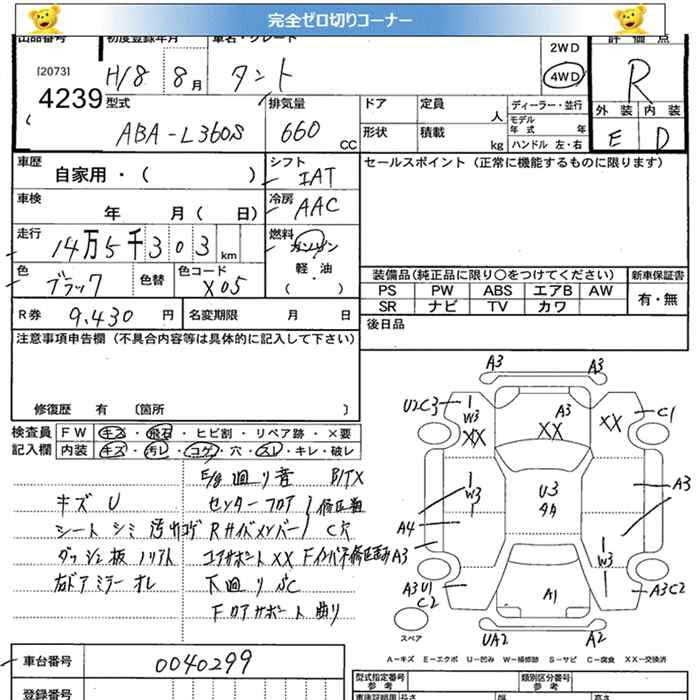 完全ゼロ切りコーナー
出品番号 初度登録年月 車名・グレード 評価点
[2073] H18 8月 タント 2WD 4WD R
4239 型式 排気量 ドア 定員 人 ディーラー・並行 外装 内装
ABA-L360S 660 CC 形状 積載 kg モデル年式 年 ハンドル 左・右 E D
車歴 自家用・( ) シフト IAT セールスポイント(正常に機能するものに限ります)
車検 年 月( 日) 冷房 AAC
走行 14万5千303km 燃料 ガソリン
軽・油
( )
色 ブラック 色替 色コード X05
装備品(純正品に限り○をつけてください) 新車保証書
PS PW ABS エアB AW 有・無
SR ナビ TV カワ
R券 9,430円 名変期限 月 日 後日品
注意事項申告欄(不具合内容等は具体的に記入して下さい)
修復歴 有 〔箇所 〕
検査員 FW キズ・飛石・ヒビ割・リペア跡・×要
記入欄 内装 キズ・汚レ・コゲ・穴・スレ・キレ・破レ
E/g廻り音 B/TX
キズ U センターフロア 修正有
シート シミ 汚れ コゲ Rサイドメンバー C穴
ダッシュ板 ノリアト コアサポートXX
右ドアミラー オレ 下廻りSC
Fロアサポート 曲り
A3 A3
U2C3 W3 A3 C1
XX XX XX
W3 U3 A3
A4 タタ
A3 W3
A3U1 C2 A1 A3C2
スペア UA2 A2
A-キズ E-エクボ U-凹み W-補修跡 S-サビ C-腐食 XX-交換済
車台番号 0040299 型式指定番号 参考 類別区分番号 参考
登録番号 車検証期間 長さ 幅 高さ